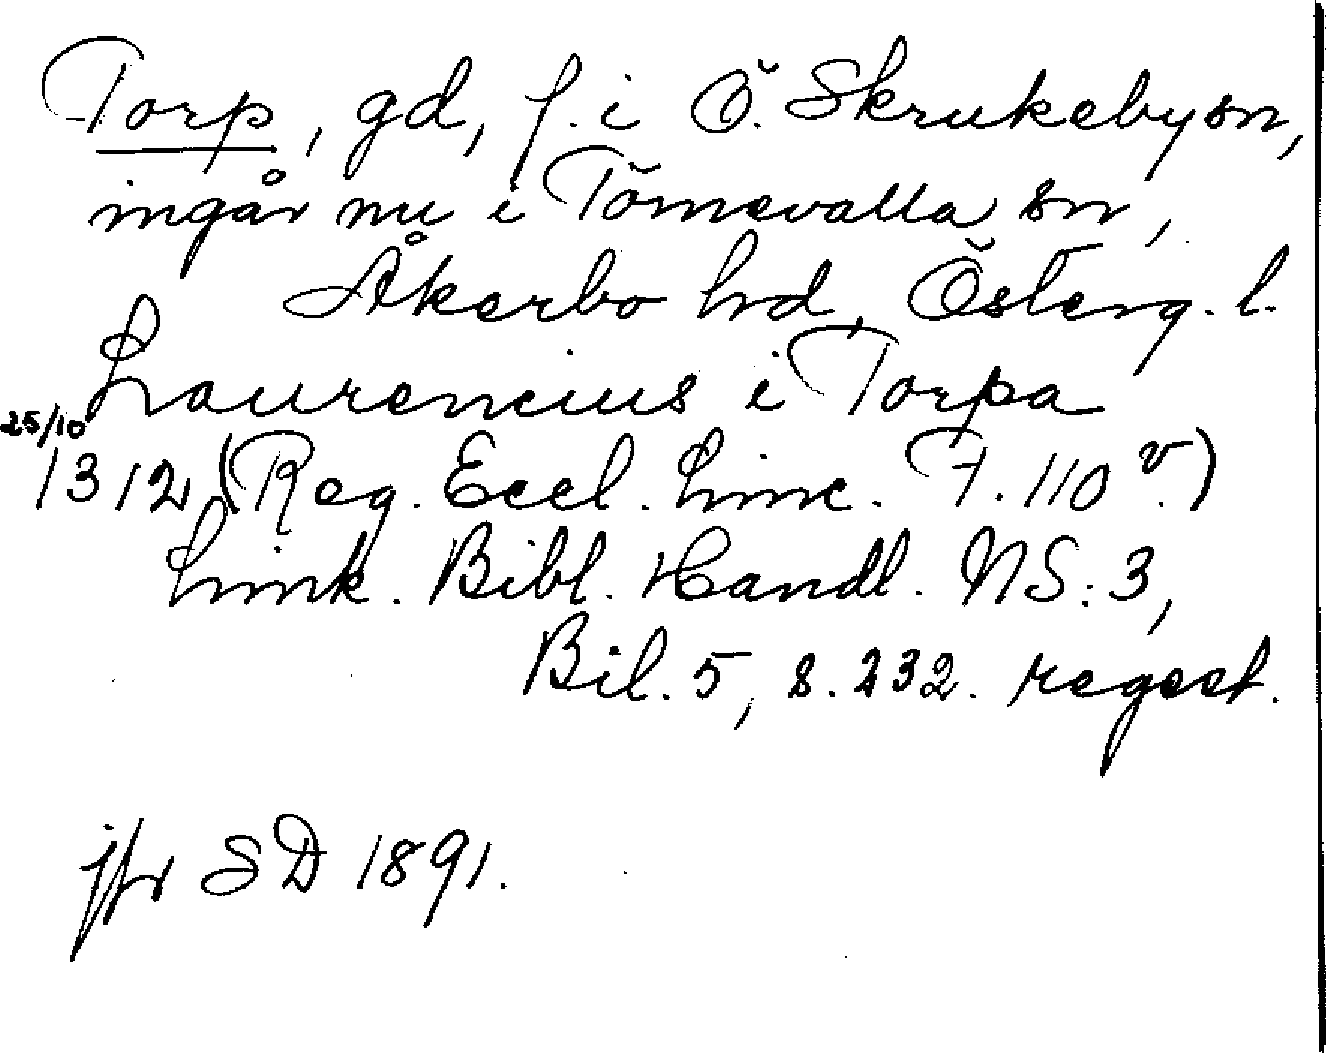 Torp, gd, f. i Ö. Skrukeby sn,
ingår nu i Törnevalla sn,
Åkerbo hd, Österg. l.
Laurencius i Torpa
25/10
1312 (Reg. Eccl. Linc. F. 110 v.)
Link. Bibl. Handl. NS: 3,
Bil. 5, s. 232. regest.
jfr SD 1891.